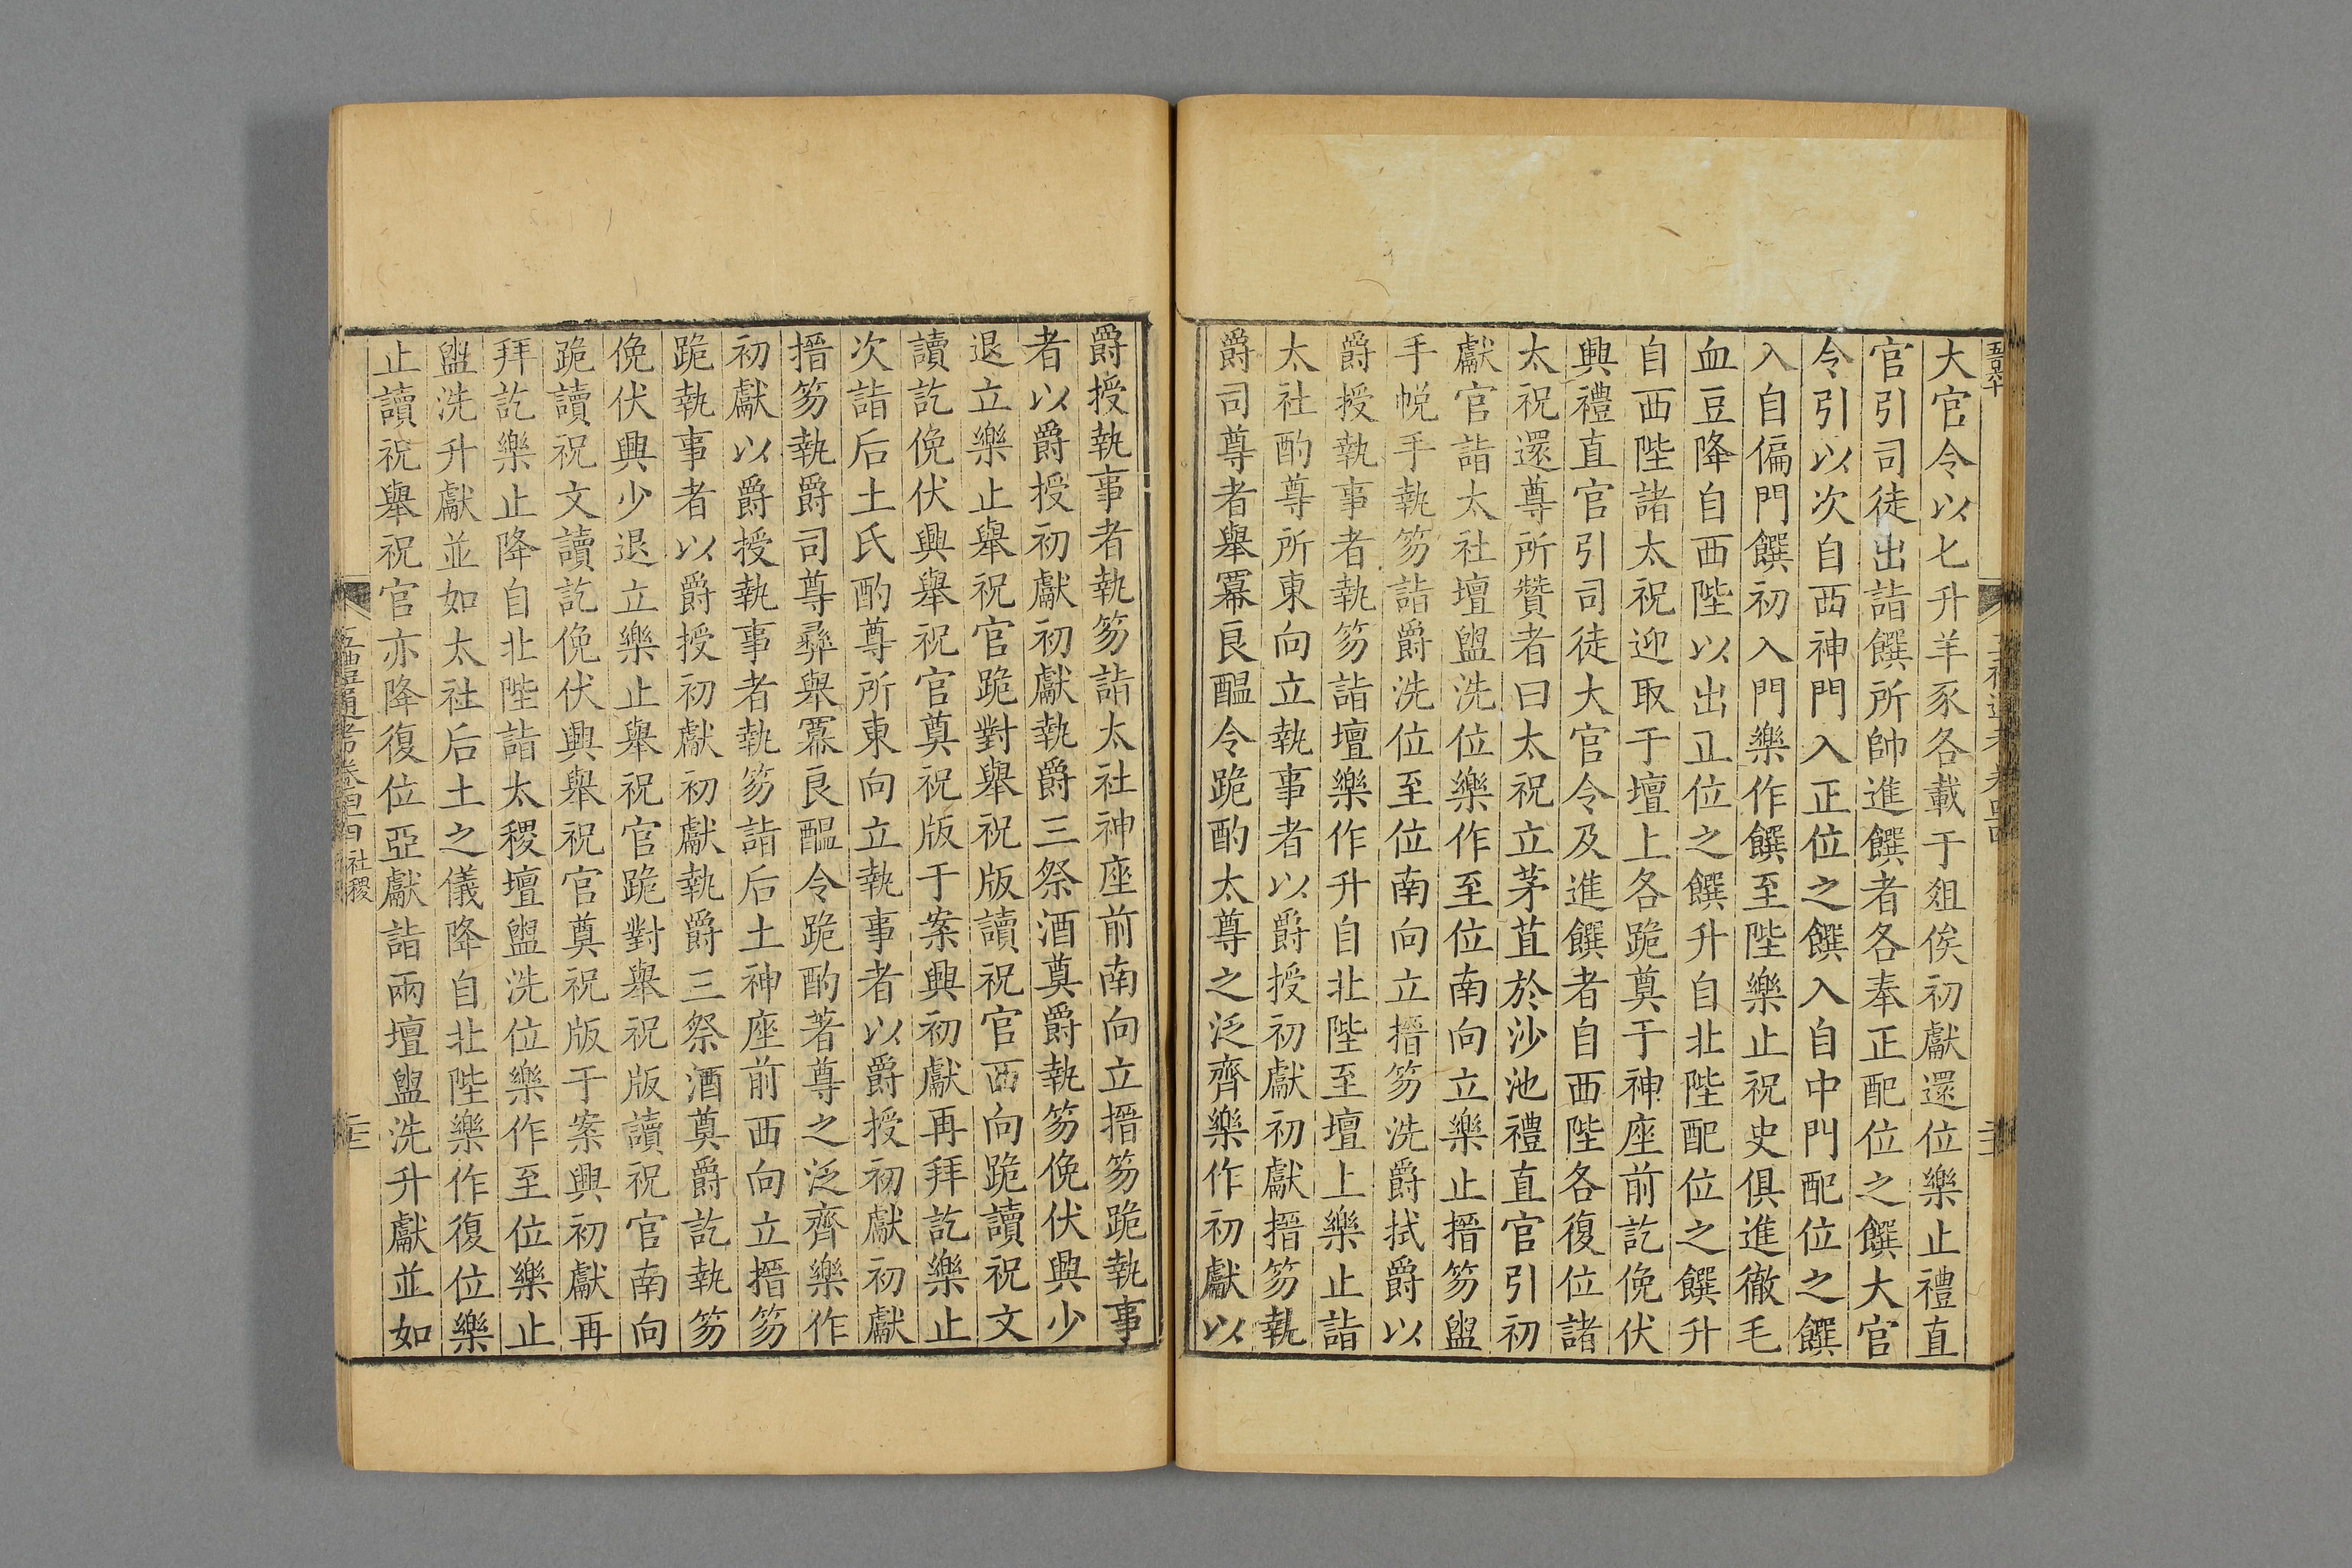 大官令以七升羊豕各載于俎俟初獻還位樂止禮直
官引司徒出詣饌所帥進饌者各奉正配位之饌大官
令引以次自西神門入正位之饌入自中門配位之饌
入自偏門饌初入門樂作饌至陛樂止祝史俱進徹毛
血豆降自西陛以出正位之饌升自北陛配位之饌升
自西陛諸太祝迎取于壇上各跪奠于神座前訖俛伏
興禮直官引司徒大官令及進饌者自西陛各復位諸
太祝還尊所贊者曰太祝立茅苴於沙池禮直官引初
獻官詣太社壇盥洗位樂作至位南向立樂止搢笏盥
手帨手執笏詣爵洗位至位南向立搢笏洗爵拭爵以
爵授執事者執笏詣壇樂作升自北陛至壇上樂止詣
太社酌尊所東向立執事者以爵授初獻初獻搢笏執
爵司尊者舉羃良醞令跪酌太尊之泛齊樂作初獻以
爵授執事者執笏詣太社神座前南向立搢笏跪執事
者以爵授初獻初獻執爵三祭酒奠爵執笏俛伏興少
退立樂止舉祝官跪對舉祝版讀祝官西向跪讀祝文
讀訖俛伏興舉祝官奠祝版于案興初獻再拜訖樂止
次詣后土氏酌尊所東向立執事者以爵授初獻初獻
搢笏執爵司尊彝舉羃良醞令跪酌著尊之泛齊樂作
初獻以爵授執事者執笏詣后土神座前西向立搢笏
跪執事者以爵授初獻初獻執爵三祭酒奠爵訖執笏
俛伏興少退立樂止舉祝官跪對舉祝版讀祝官南向
跪讀祝文讀訖俛伏興舉祝官奠祝版于案興初獻再
拜訖樂止降自北陛詣太稷壇盥洗位樂作至位樂止
盥洗升獻並如太社后土之儀降自北陛樂作復位樂
止讀祝舉祝官亦降復位亞獻詣兩壇盥洗升獻並如
五禮通考卷 社稷